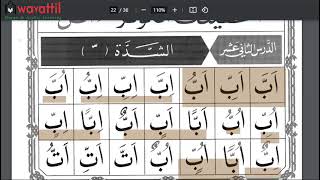 wavattil
22 / 36
110%
الدَّرْسُ الثَّانِي عَشَر
الشَّدَّة ( ّ )
اَبَّ اَبِّ اَبُّ اِبَّ اِبِّ اِبُّ اُبَّ
اُبِّ اُبُّ اَبًّا اَبٍّ اَبٌّ اِبًّا اِبٍّ
اِبٌّ اُبًّا اُبٍّ اُبٌّ اَتَّ اَتِّ اَتُّ